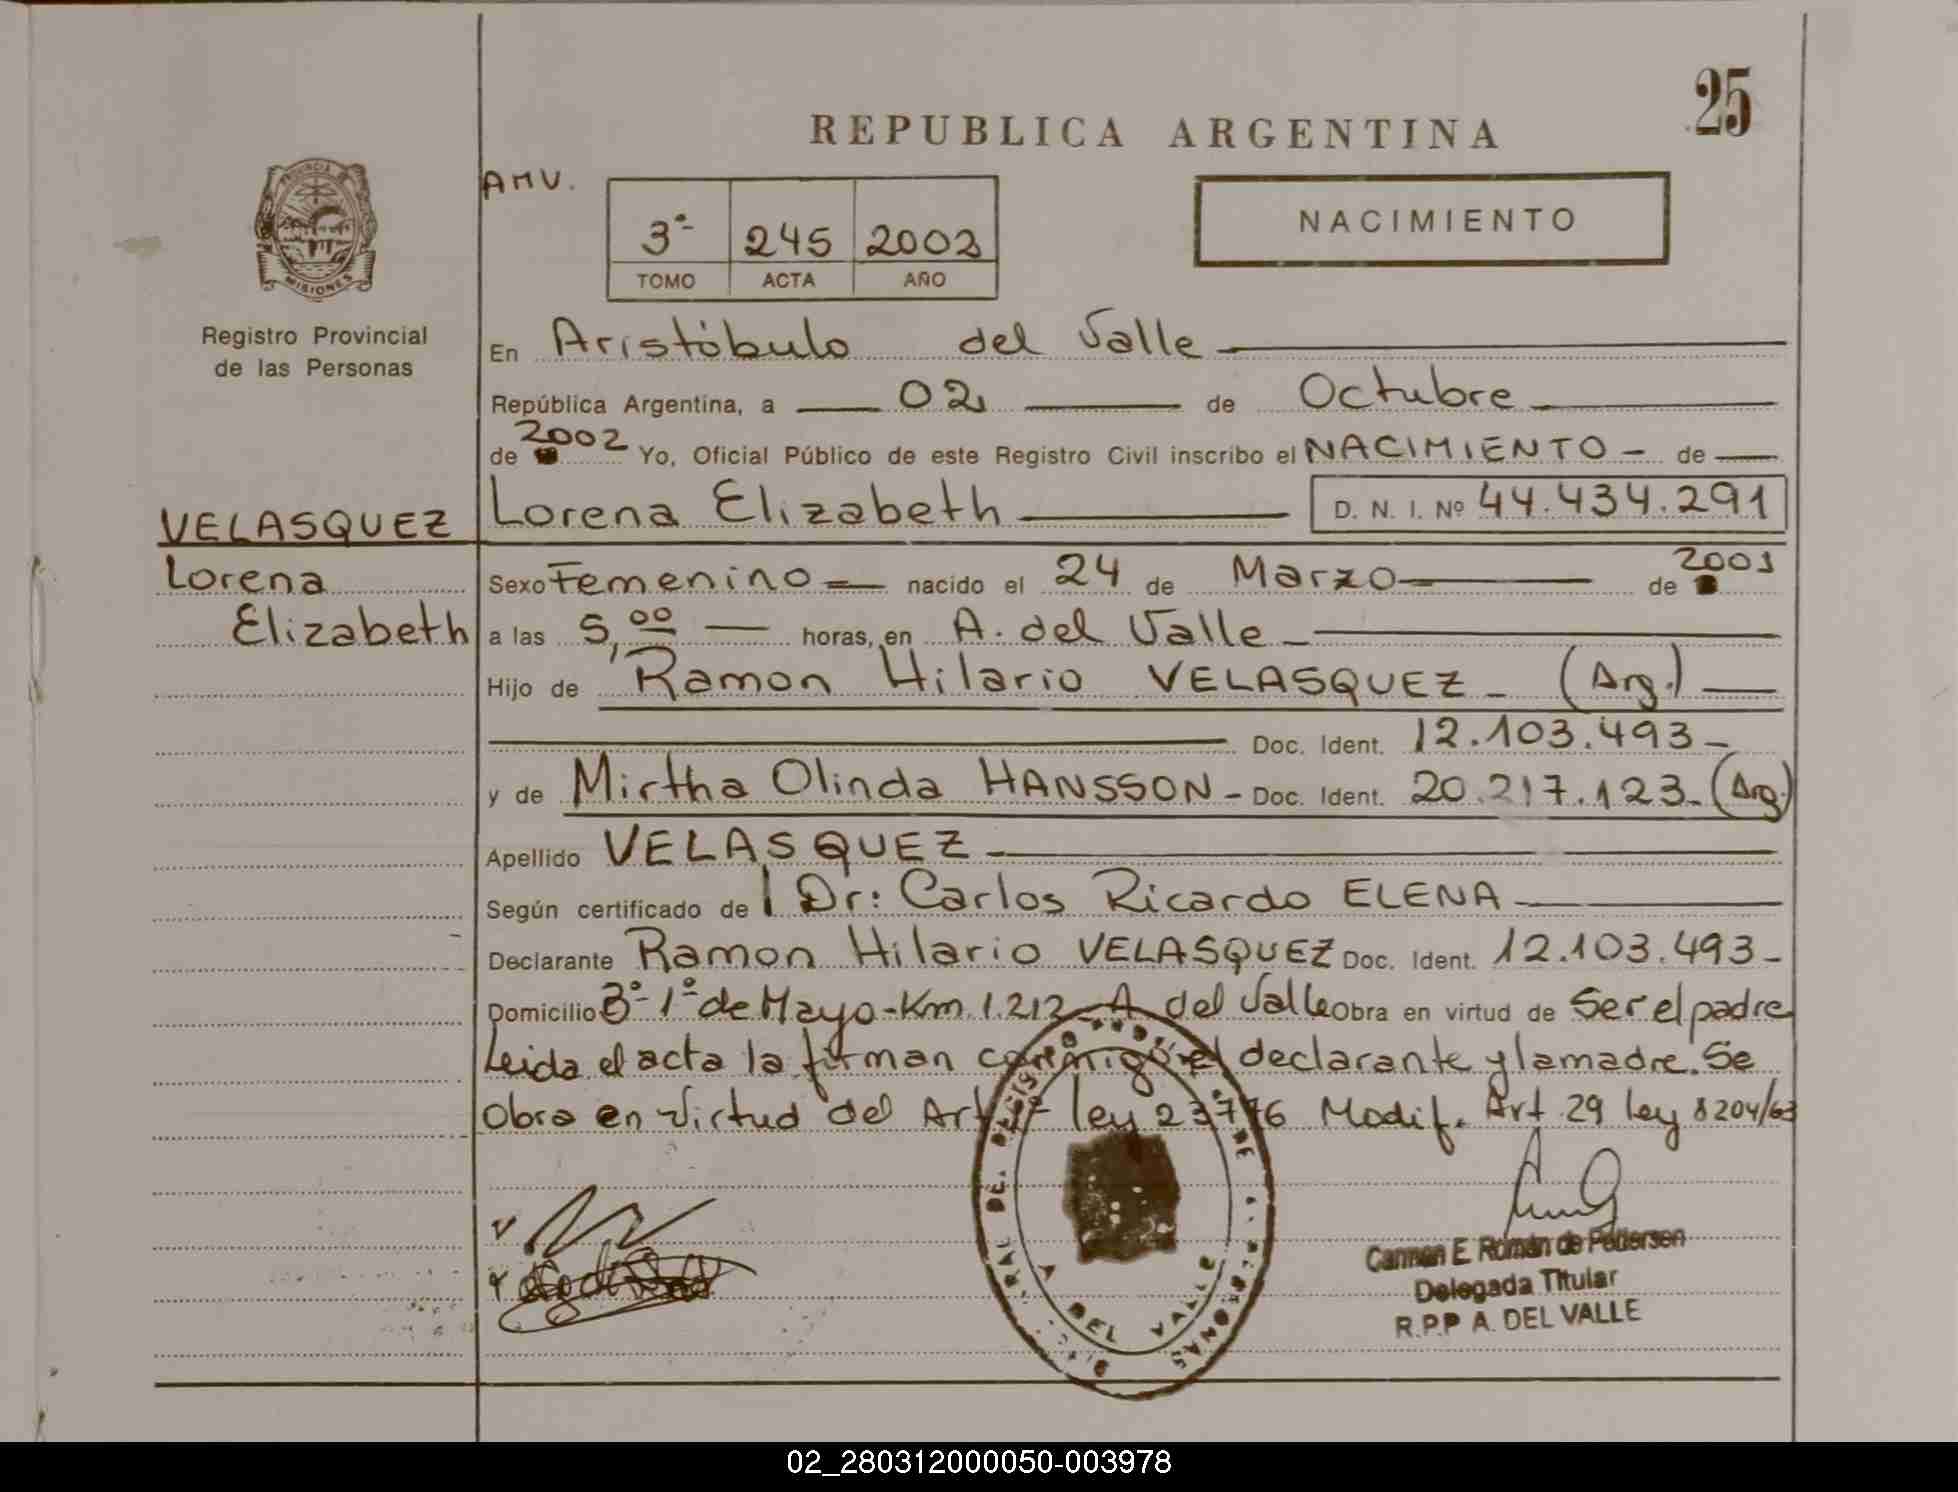 25
REPUBLICA ARGENTINA
AMV.
PROVINCIA DE MISIONES
3º 245 2002
TOMO ACTA AÑO
NACIMIENTO
Registro Provincial
de las Personas
En Aristóbulo del Valle
República Argentina, a 02 de Octubre
de 2002 Yo, Oficial Público de este Registro Civil inscribo el NACIMIENTO - de
VELASQUEZ
Lorena
Elizabeth
Lorena Elizabeth D. N. I. Nº 44.434.291
Sexo Femenino nacido el 24 de Marzo de 2001
a las 5,00 horas, en A. del Valle
Hijo de Ramon Hilario VELASQUEZ - (Arg.)
Doc. Ident. 12.103.493-
y de Mirtha Olinda HANSSON - Doc. Ident. 20.217.123- (Arg.)
Apellido VELASQUEZ
Según certificado de Dr: Carlos Ricardo ELENA
Declarante Ramon Hilario VELASQUEZ Doc. Ident. 12.103.493-
Domicilio Bº 1º de Mayo-Km. 1.212- A del Valle Obra en virtud de Ser el padre
Leida el acta la firman conmigo el declarante y la madre. Se
Obra en virtud del Art ley 23776 Modif. Art 29 ley 8204/63
DEL VALLE
Carmen E. Román de Pedersen
Delegada Titular
R.P.P A. DEL VALLE
02_280312000050-003978